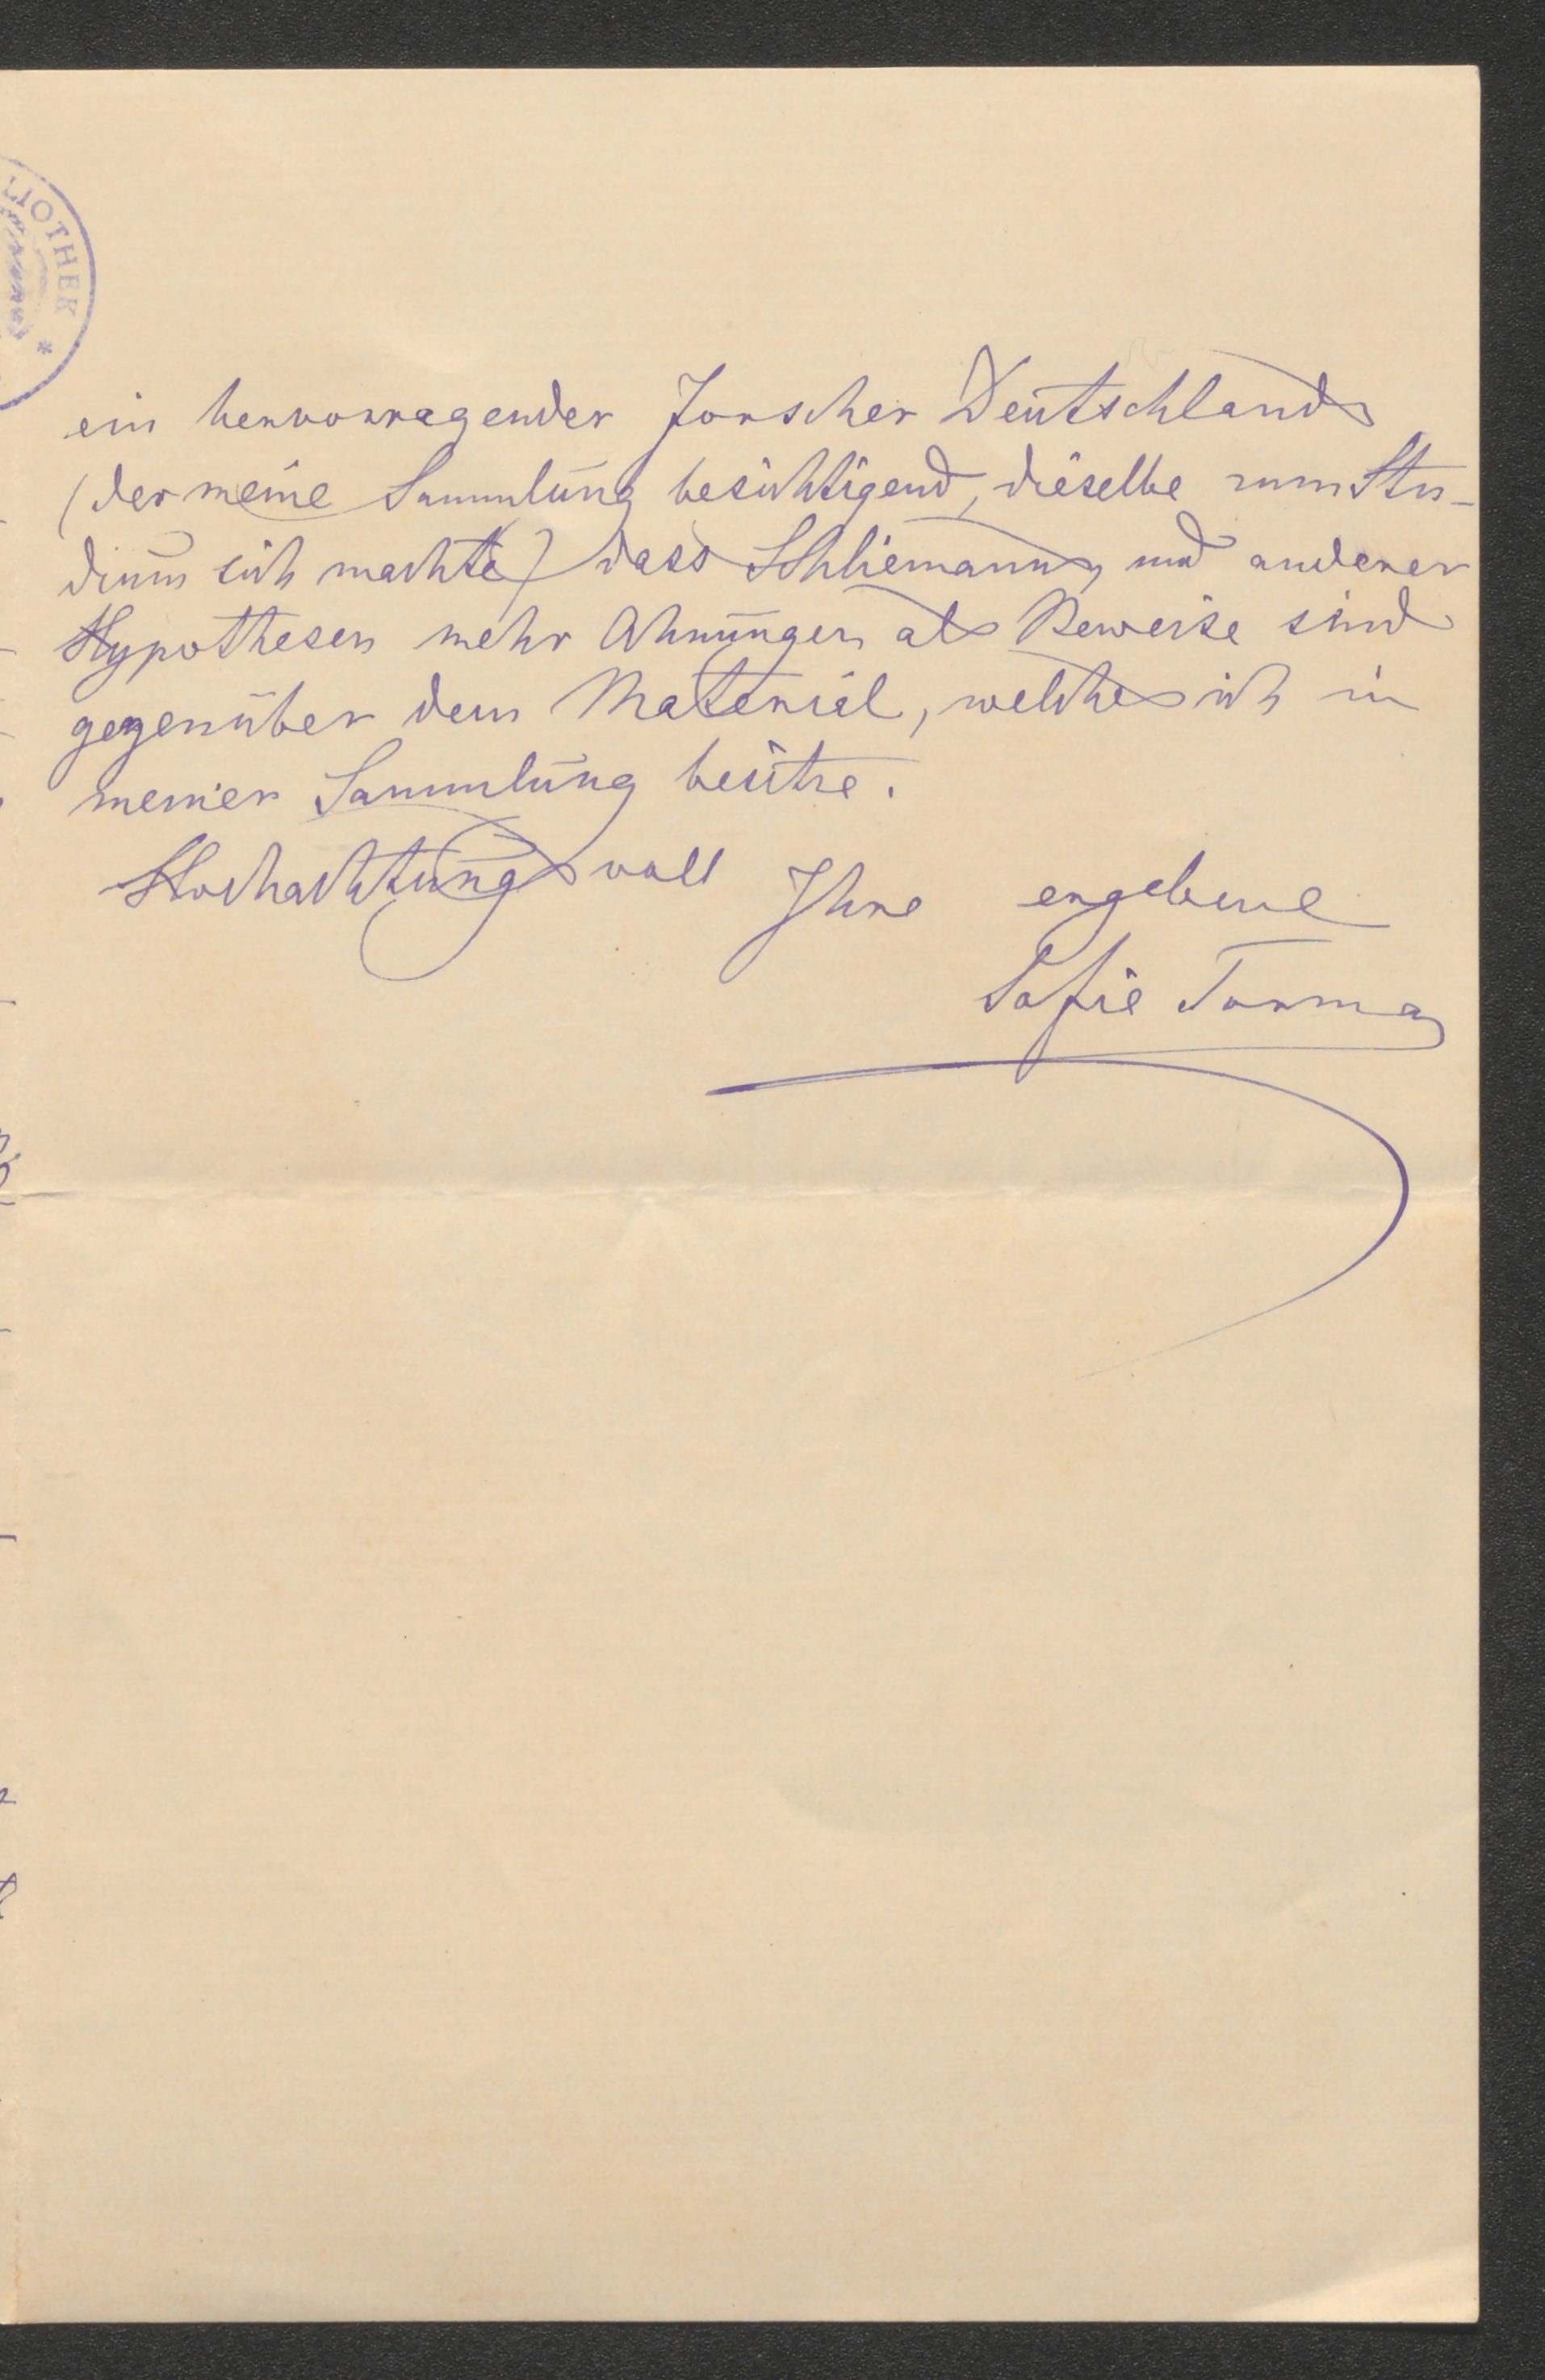 LIOTHEK *
ein hervorragender Forscher Deutschlands
(der meine Sammlung besichtigend, dieselbe zum Stu-
dium sich machte) dass Schliemanns und anderer
Hypothesen mehr Ahnungen als Beweise sind
gegenüber dem Material, welches ich in
meiner Sammlung besitze.
Hochachtungsvoll Ihre ergebene
Sofie Torma